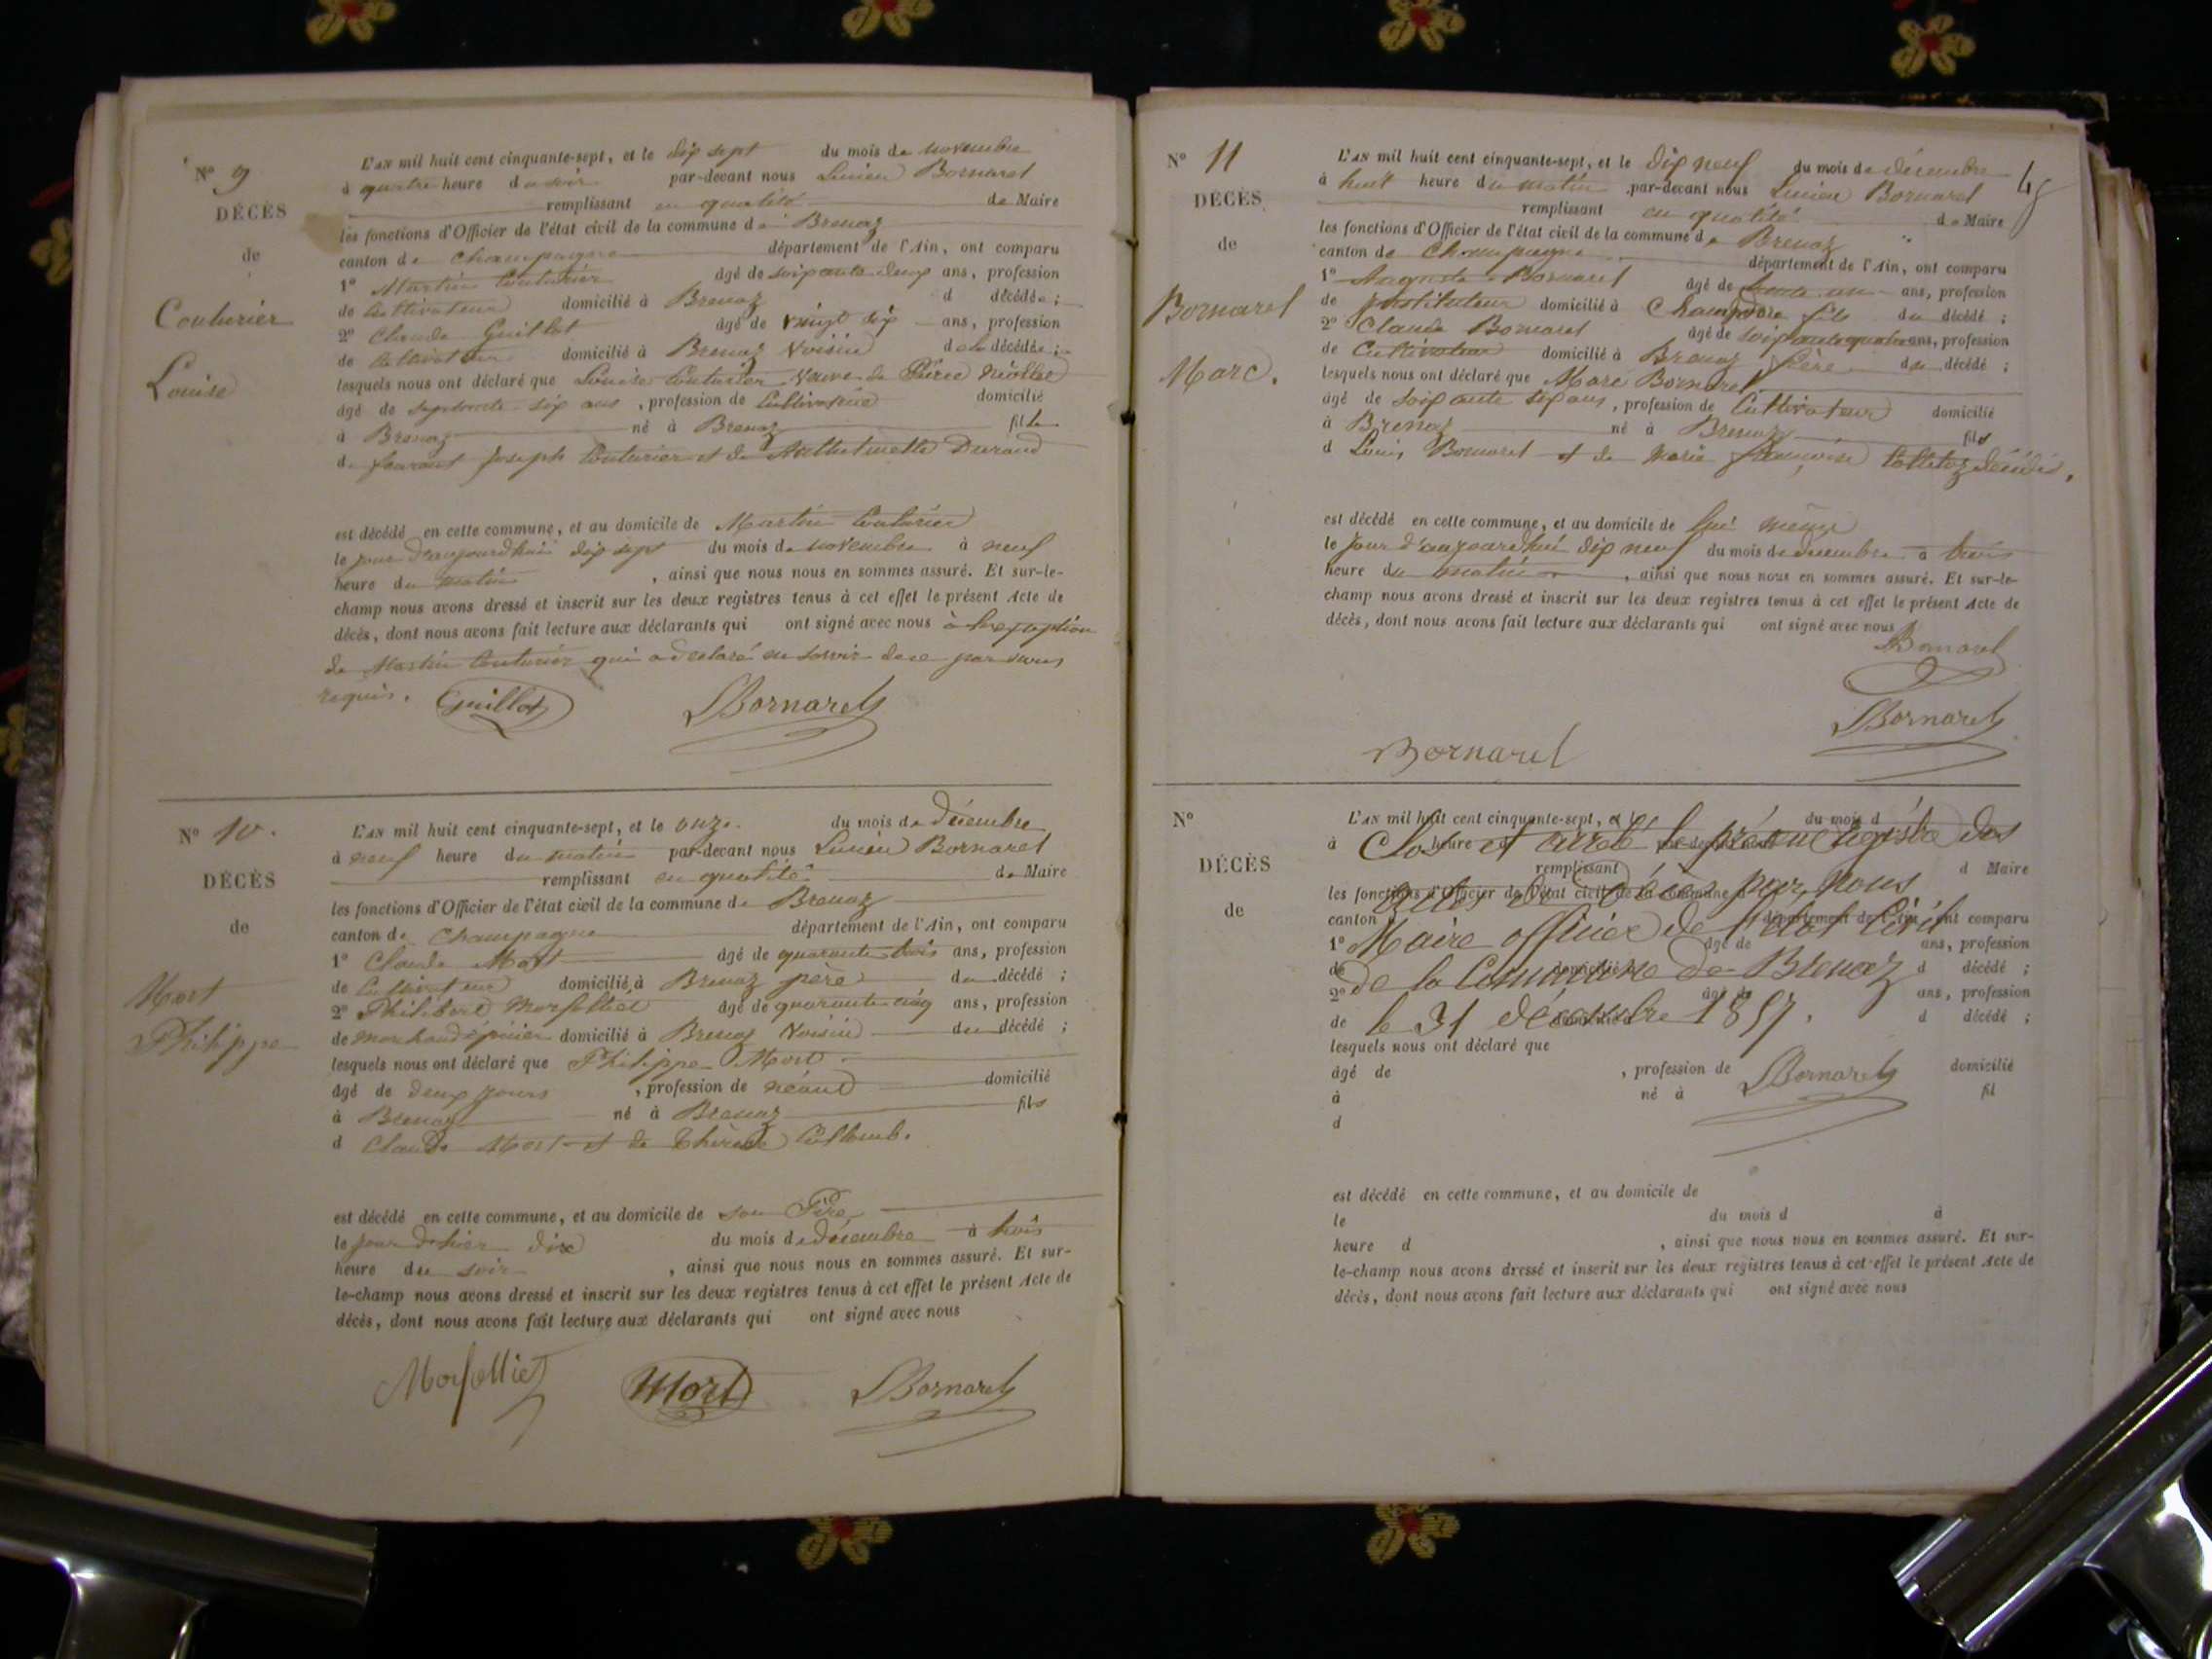 N° 9
DÉCÈS
de
Couturier
Louise
L'AN mil huit cent cinquante-sept, et le dix sept du mois de novembre
à quatre heure du soir par-devant nous Lucien Bornarel
remplissant en qualité de Maire
les fonctions d'Officier de l'état civil de la commune de Brenaz
canton de Champagne département de l'Ain, ont comparu
1° Martin Couturier âgé de soixante deux ans, profession
de Cultivateur domicilié à Brenaz d décédée ;
2° Claude Guillot âgé de vingt six ans, profession
de Cultivateur domicilié à Brenaz Voisin de la décédée ;
lesquels nous ont déclaré que Louise Couturier Veuve de Pierre
âgé de septante six ans, profession de Cultivatrice domicilié
à Brenaz né à Brenaz fille
de Joseph Couturier et de Durand
est décédé en cette commune, et au domicile de Martin Couturier
le jour d'aujourdhui dix sept du mois de novembre à neuf
heure du matin, ainsi que nous nous en sommes assuré. Et sur-le-
champ nous avons dressé et inscrit sur les deux registres tenus à cet effet le présent Acte de
décès, dont nous avons fait lecture aux déclarants qui ont signé avec nous à l'exception
de Martin Couturier qui a déclaré ne savoir de ce par nous
requis. Guillot Bornarel
N° 10.
DÉCÈS
de
Mort
Philippe
L'AN mil huit cent cinquante-sept, et le onze du mois de Décembre
à neuf heure du matin par-devant nous Lucien Bornarel
remplissant en qualité de Maire
les fonctions d'Officier de l'état civil de la commune de Brenaz
canton de Champagne département de l'Ain, ont comparu
1° Claude Mort âgé de quarante trois ans, profession
de Cultivateur domicilié à Brenaz père du décédé ;
2° Philibert Morfolliet âgé de quarante cinq ans, profession
de marchand épicier domicilié à Brenaz Voisin du décédé ;
lesquels nous ont déclaré que Philippe Mort
âgé de deux jours, profession de néant domicilié
à Brenaz né à Brenaz fils
d Claude Mort et de Thérèse
est décédé en cette commune, et au domicile de son Père
le jour d'hier dix du mois de décembre à trois
heure du soir, ainsi que nous nous en sommes assuré. Et sur-
le-champ nous avons dressé et inscrit sur les deux registres tenus à cet effet le présent Acte de
décès, dont nous avons fait lecture aux déclarants qui ont signé avec nous
Morfolliet Mort Bornarel
N° 11
DÉCÈS
de
Bornarel
Marc.
L'AN mil huit cent cinquante-sept, et le dix neuf du mois de décembre
à huit heure du matin par-devant nous Lucien Bornarel
remplissant en qualité de Maire
les fonctions d'Officier de l'état civil de la commune de Brenaz
canton de Champagne département de l'Ain, ont comparu
1° Auguste Bornarel âgé de trente un ans, profession
de instituteur domicilié à Champdore fils du décédé ;
2° Claude Bornarel âgé de soixante quatre ans, profession
de Cultivateur domicilié à Brenaz frère du décédé ;
lesquels nous ont déclaré que Marc Bornarel
âgé de soixante six ans, profession de Cultivateur domicilié
à Brenaz né à Brenaz fils
d Louis Bornarel et de Marie Françoise décédés.
est décédé en cette commune, et au domicile de lui même
le jour d'aujourdhui dix neuf du mois de décembre à trois
heure du matin, ainsi que nous nous en sommes assuré. Et sur-le-
champ nous avons dressé et inscrit sur les deux registres tenus à cet effet le présent Acte de
décès, dont nous avons fait lecture aux déclarants qui ont signé avec nous
Bornarel
Bornarel
Bornarel
N°
DÉCÈS
de
L'AN mil huit cent cinquante-sept, et le du mois d
à heure d
Clos et arrêté le présent registre des
remplissant d Maire
les fonctions d'Officier de l'état civil de la commune d
actes de Décès par Nous
canton d département de l'Ain, ont comparu
Maire officier de l'état Civil
1° âgé de ans, profession
de la Commune de Brenaz
de domicilié d décédé ;
2° âgé de ans, profession
le 31 décembre 1857.
de d décédé ;
lesquels nous ont déclaré que
âgé de , profession de domicilié
Bornarel
à né à fil
d
est décédé en cette commune, et au domicile de
le du mois d à
heure d , ainsi que nous nous en sommes assuré. Et sur-
le-champ nous avons dressé et inscrit sur les deux registres tenus à cet effet le présent Acte de
décès, dont nous avons fait lecture aux déclarants qui ont signé avec nous